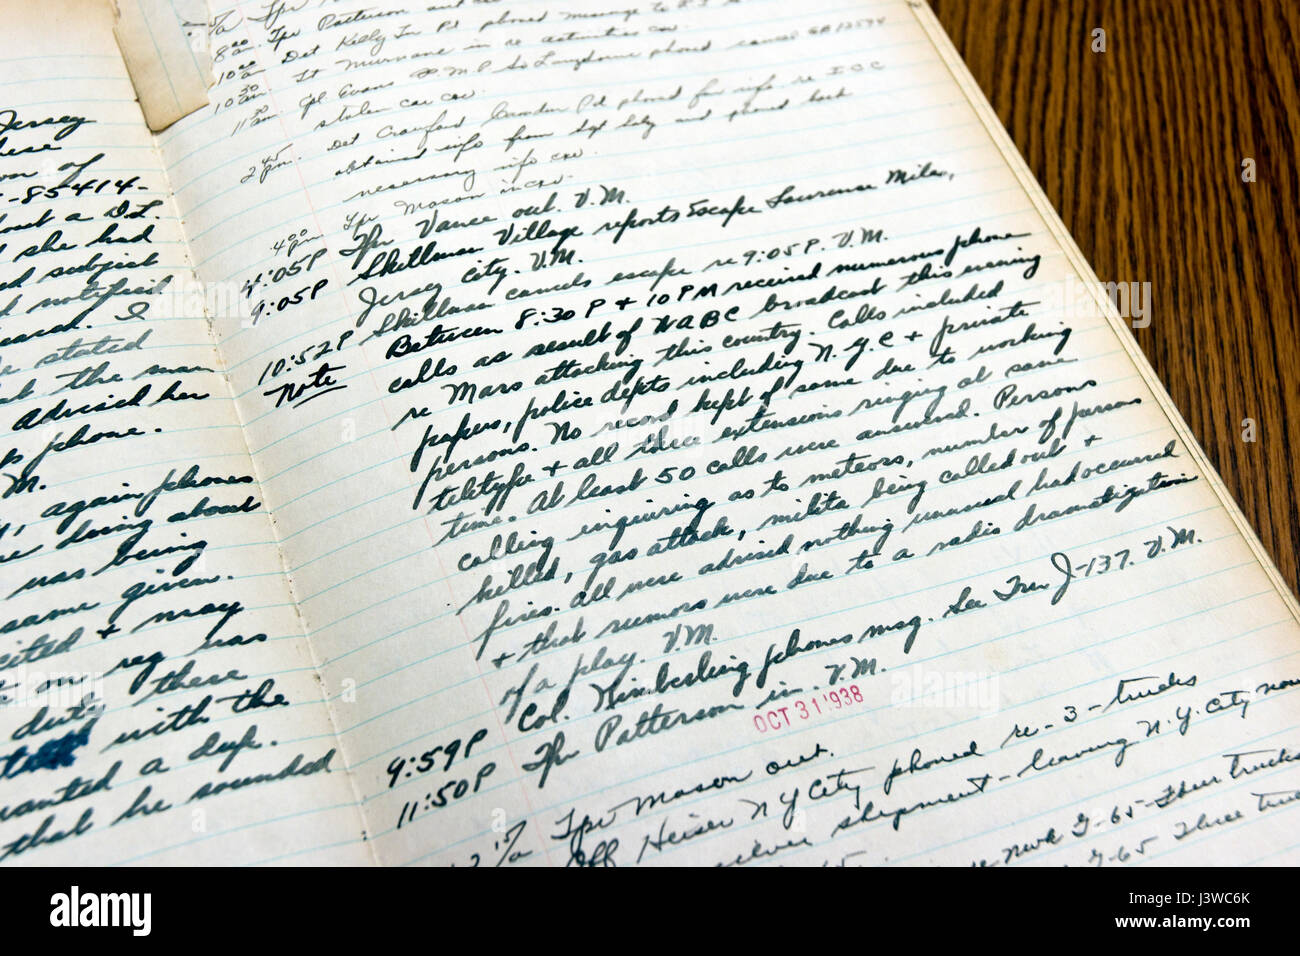 Jersey
of
-85414-
out a D.L.
she had
subject
notified
I
stated
at the man
Advised her
phone.
M.
again phones
during about
was being
same given.
cited + may
on reg was
duty these
with the
wanted a dupe.
that he sounded
Tpr Patterson
8 00 am Det Kelly Tn Pd phoned message to
10 00 am Lt Murnane in re activities
10 30 am Cpl Evans P.M.P. so Langhorne phoned cancel
11 30 am stolen car
2 45 pm. Det Crawford Camden Pd phoned for info re I.C.C
obtained info from Sgt and phoned back
necessary info
4 00 pm Tpr Mason in
4:05P Tpr Vance out. V.M.
9:05P Skillman Village reports Escape Lawrence Miler,
Jersey City. V.M.
10:52P Skillman cancels escape re 9:05P. V.M.
Note Between 8:30P + 10PM received numerous phone
calls as result of WABC broadcast this evening
re Mars attacking this country. Calls included
papers, police depts including N.Y.C + private
persons. No record kept of same due to working
teletype + all three extensions ringing at same
time. At least 50 calls were answered. Persons
calling inquiring as to meteors, number of persons
killed, gas attack, militia being called out +
fires. All were advised nothing unusual had occurred
+ that rumors were due to a radio dramatization
of a play. V.M.
9:59P Col. Kimberling phones msg. See Tren J-137. V.M.
11:50P Tpr Patterson in. V.M.
OCT 31 1938
Tpr Mason out.
Off Heiser N Y City phoned re - 3 - trucks
silver shipment - leaving N.Y. City now
G-65- Three trucks
G-65 Three
alamy
J3WC6K
www.alamy.com